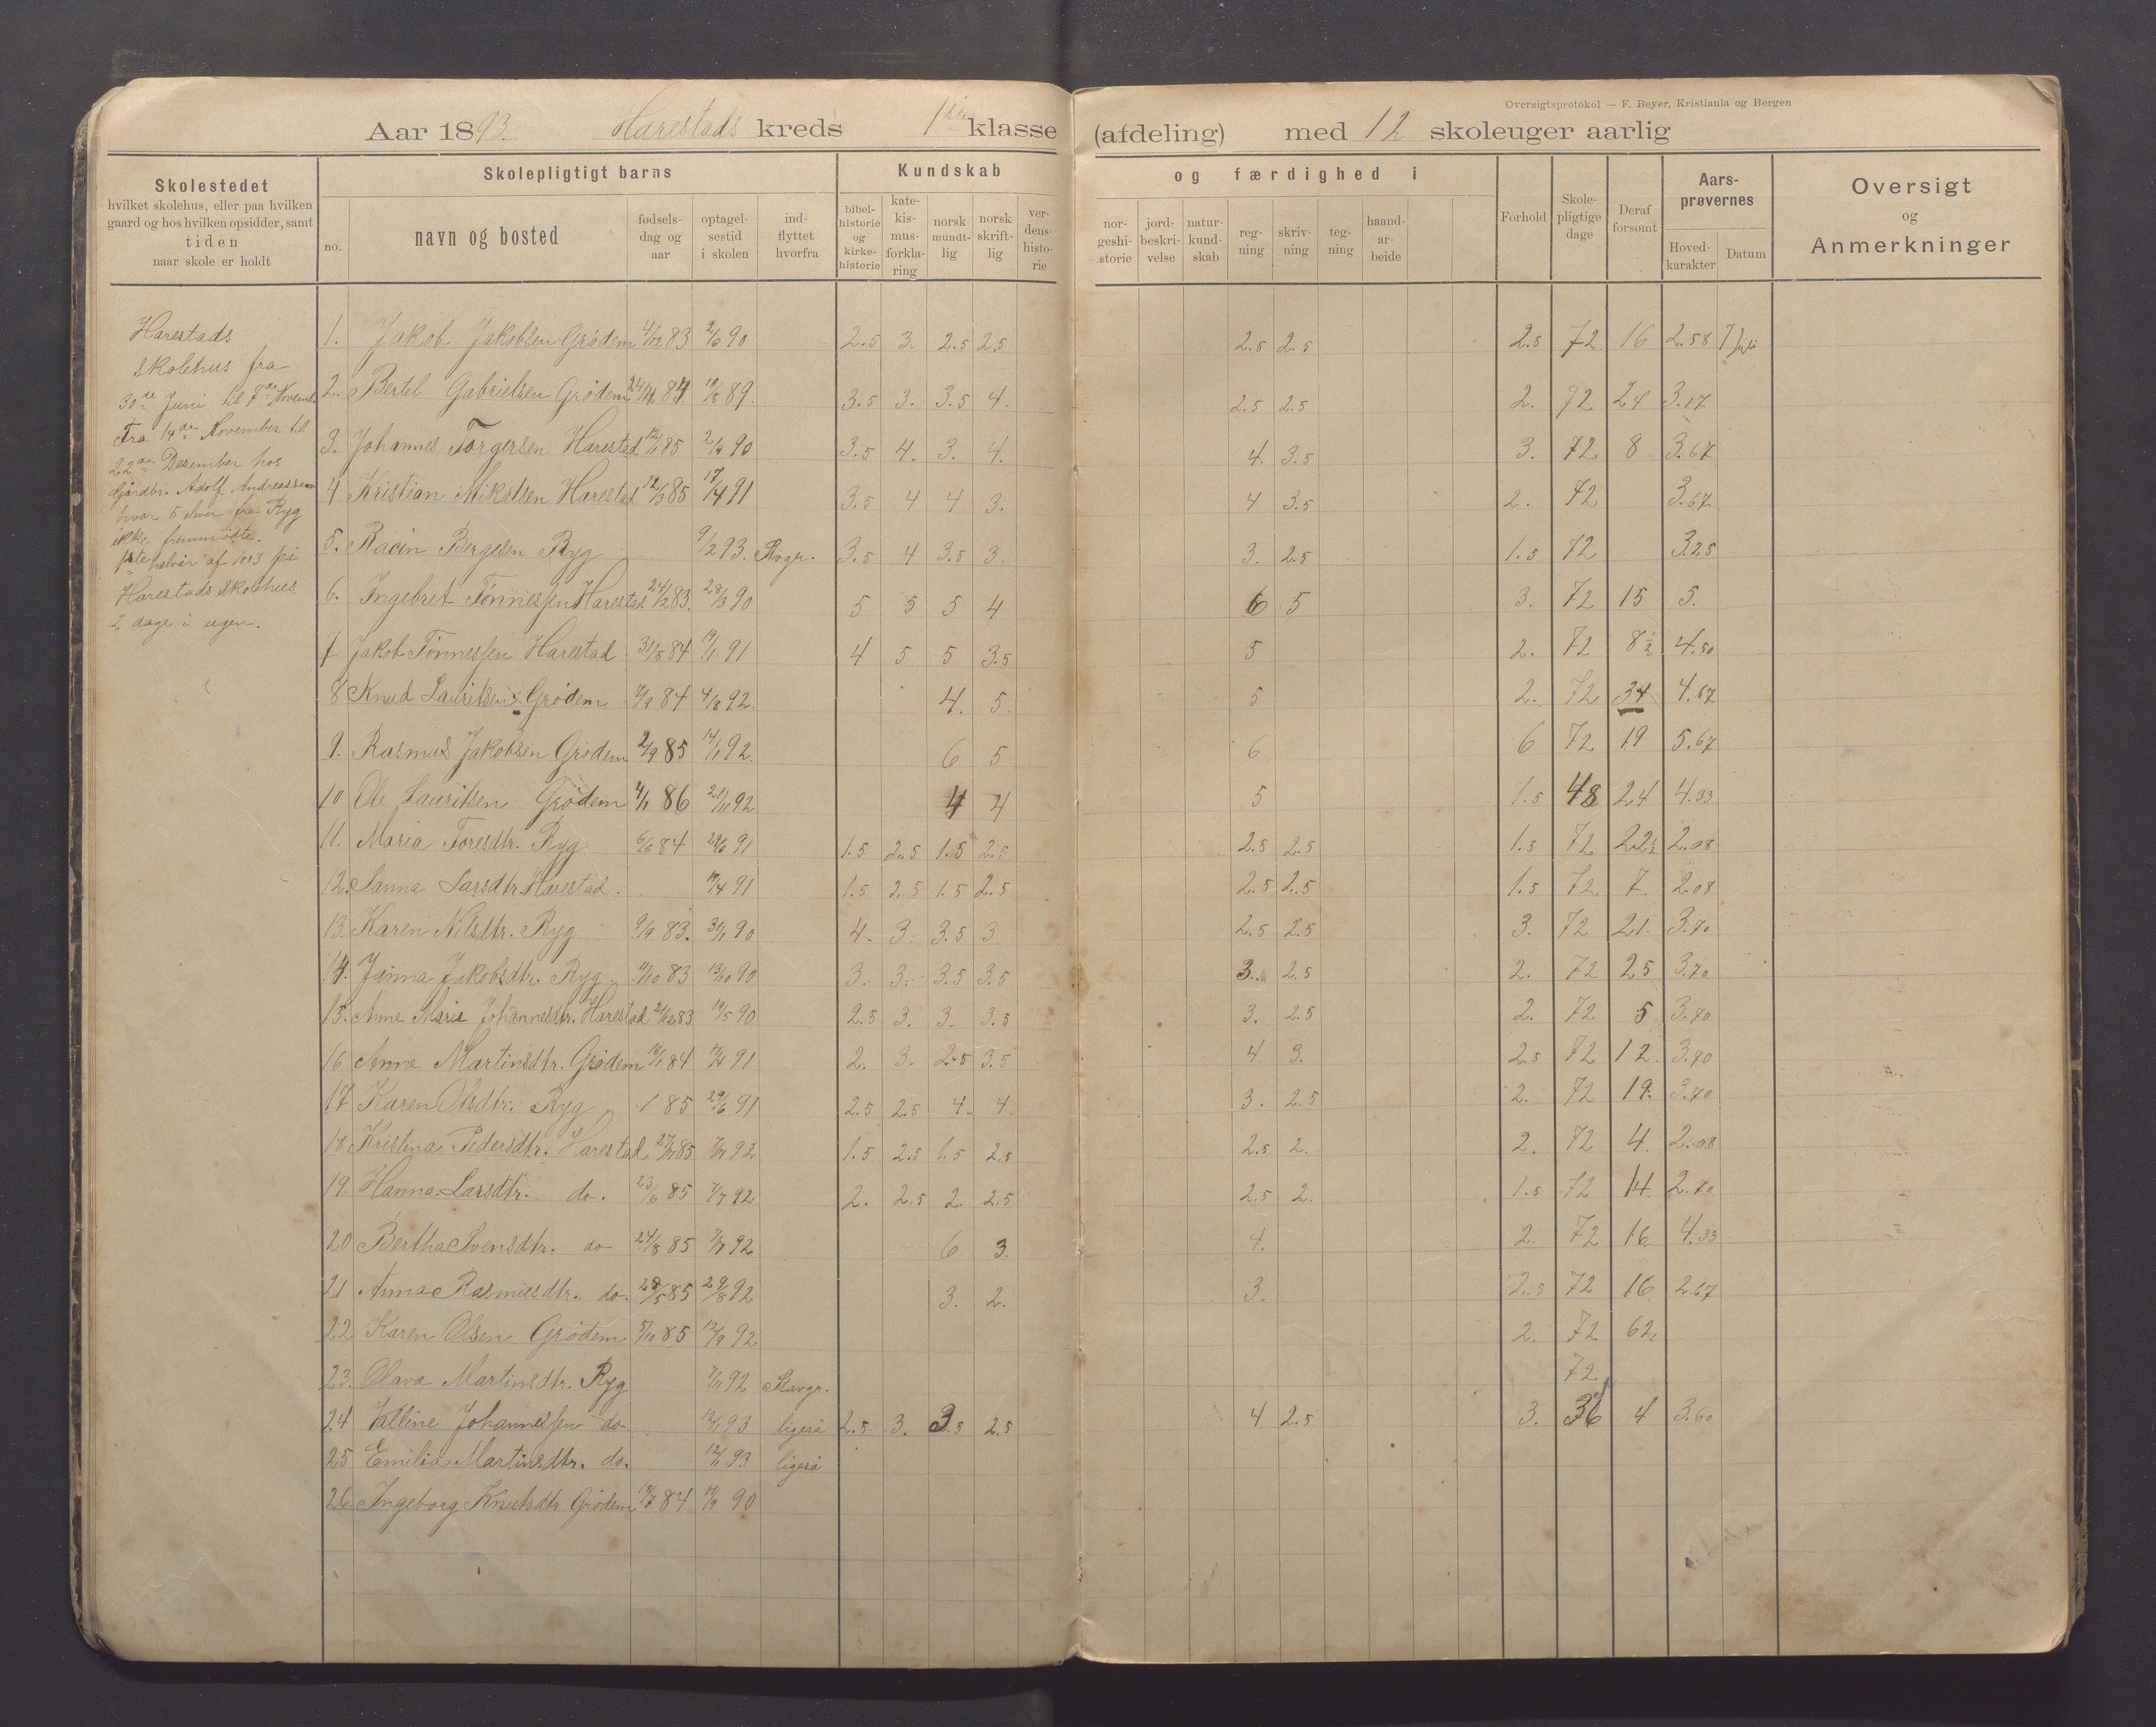 Oversigtsprotokol — F. Beyer, Kristiania og Bergen
Aar 1893. Harestads kreds 1ste klasse (afdeling) med 12 skoleuger aarlig
Skolestedet
hvilket skolehus, eller paa hvilken
gaard og hos hvilken opsidder, samt
tiden
naar skole er holdt
Skolepligtigt barns
no.
navn og bosted
fødsels-
dag og
aar
optagel-
sestid
i skolen
ind-
flyttet
hvorfra
Kundskab
bibel-
historie
og
kirke-
historie
kate-
kis-
mus-
forkla-
ring
norsk
mundt-
lig
norsk
skrift-
lig
ver-
dens-
histo-
rie
og færdighed i
nor-
geshi-
storie
jord-
beskri-
velse
natur-
kund-
skab
reg-
ning
skriv-
ning
teg-
ning
haand-
ar-
beide
Forhold
Skole-
pligtige
dage
Deraf
forsømt
Aars-
prøvernes
Hoved-
karakter
Datum
Oversigt
og
Anmerkninger
Harestads
skolehus fra
30te Juni til 7de Novemb.
Fra 14de November til
22de Dezember hos
Gårdbr. Adolf Andreassen
hvor 5 elever fra Ryg
ikke fremmødte.
1ste halvår af 1893 på
Harestads skolehus
2 dage i ugen.
1. Jakob Jakobsen Grødem 4/12 83 2/6 90 2.5 3. 2.5 2.5 2.5 2.5 2.5 72 16 2.58 7 juli
2. Bertel Gabrielsen Grødem 84 89. 3.5 3. 3.5 4. 2.5 2.5 2. 72 24 3.17
3. Johannes Torgersen Harestad 85 90 3.5 4. 3. 4. 4. 3.5 3. 72 8 3.67
4 Kristian Mikalsen Harestad 12/3 85 17/4 91 3.5 4 4 3. 4 3.5 2. 72 3.67
5. Racin Bergesen Ryg 9/2 93. Stvgr. 3.5 4 3.5 3. 3. 2.5 1.5 72 3.25
6. Ingebret Tønnessen Harestad 24/12 83. 28/3 90 5 5 5 4 6 5 3. 72 15 5.
7 Jakob Tønnessen Harestad 31/5 84 19/1 91 4 5 5 3.5 5 2. 72 8½ 4.50
8 Knud Lauritsen Grødem 84 4/8 92. 4. 5. 5 2. 72 34 4.67
9. Rasmus Jakobsen Grødem 2/9 85 14/1 92. 6 5 6 6 72 19 5.67
10 Ole Lauritsen Grødem 4/1 86 21/11 92 4 4 5 1.5 48 24 4.33
11. Maria Toresdtr. Ryg 6/6 84 29/6 91 1.5 2.5 1.5 2.5 2.5 2.5 1.5 72 22½ 2.08
12. Sanna Larsdtr. Harestad. 17/4 91 1.5 2.5 1.5 2.5 2.5 2.5 1.5 72 7. 2.08
13. Karen Nilsdtr. Ryg 9/9 83. 30/1 90 4. 3. 3.5 3 2.5 2.5 3. 72 21. 3.70
14. Janna Jakobsdtr. Ryg. 83 13/10 90 3. 3. 3.5 3.5 3. 2.5 2. 72 25 3.70
15. Anne Marie Johannesdtr. Harestad 2/12 83 19/5 90 2.5 3. 3. 3.5 3. 2.5 2. 72 5 3.70
16 Anne Martinsdtr. Grødem 84 17/4 91 2. 3. 2.5 3.5 4. 3. 2.5 72 12. 3.70
17 Karen Olsdtr. Ryg 85 29/6 91 2.5 2.5 4. 4. 3. 2.5 2. 72 19. 3.70
18. Kristina Pedersdtr. Harestad 85 7/7 92 1.5 2.5 1.5 2.5 2.5 2. 2. 72 4. 2.08
19. Hanna Larsdtr. do. 23/6 85 7/7 92 2. 2.5 2. 2.5 2.5 2. 1.5 72 14. 2.70
20 Bertha Svensdtr. do 24/8 85 7/7 92 6 3. 4. 2. 72 16. 4.33
21 Anna Rasmusdtr. do. 28/5 85 29/8 92 3. 2. 3. 2.5 72 16. 2.67
22 Karen Olsen Grødem 5/10 85 92 2. 72 62.
23. Olava Martinsdtr. Ryg 7/1 92 Stavgr. 72
24 Valline Johannessen do. 12/1 93 ligeså 2.5 3. 3.5 2.5 4 2.5 3. 36 4 3.60
25 Emilia Martinsdtr. do. 12/1 93 ligeså
26. Ingeborg Knutsdtr. Grødem 84 90